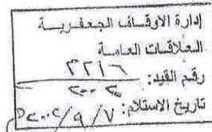 إدارة الاوقاف الجعفرية
العلاقات العامة
رقم القيد: ٣٢١٦
٢٠٠٢
تاريخ الاستلام: ٢٠٠٢/٩/٧